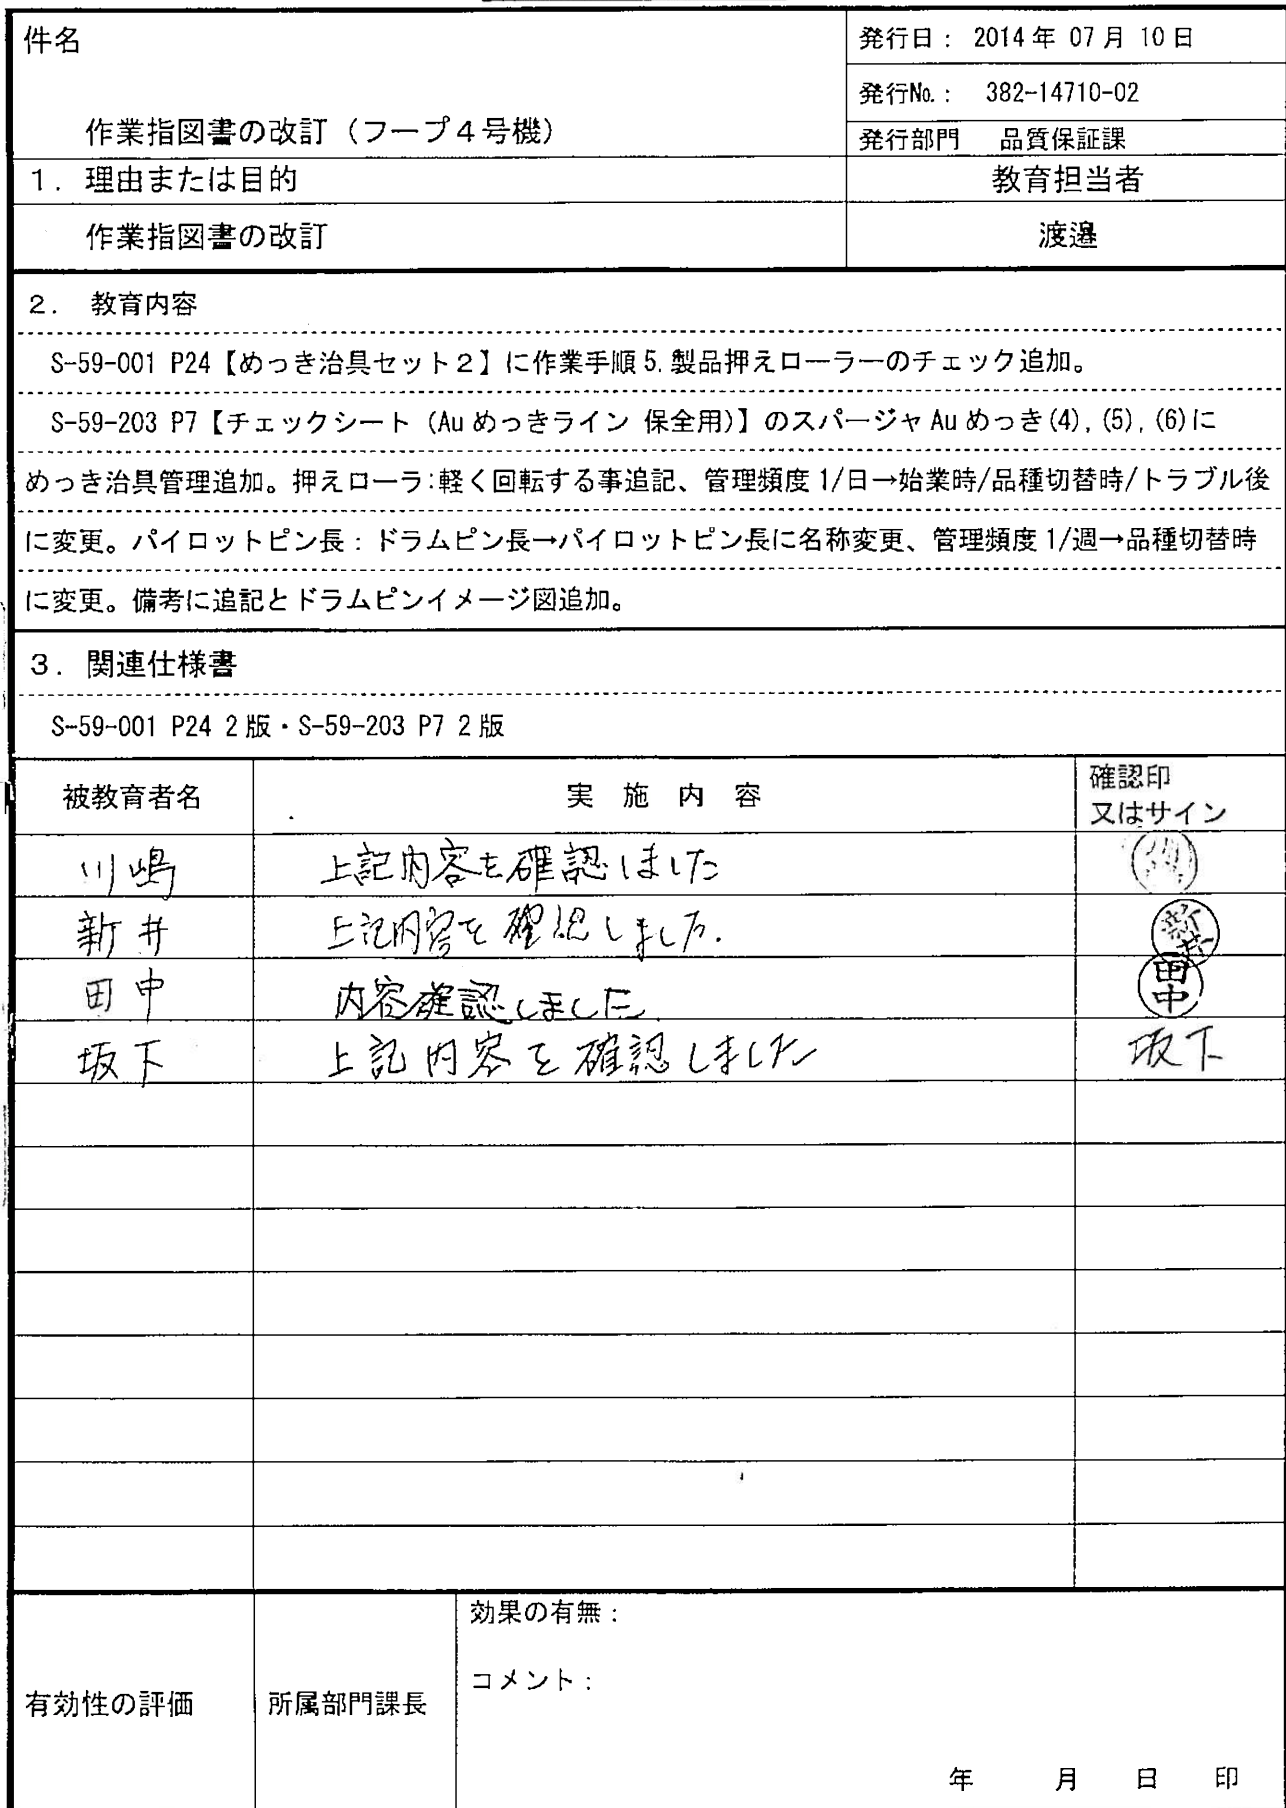 件名
発行日： 2014年 07月 10日
発行No.： 382-14710-02
作業指図書の改訂（フープ４号機）
発行部門 品質保証課
１．理由または目的
教育担当者
作業指図書の改訂
渡邉
２． 教育内容
S-59-001 P24【めっき治具セット２】に作業手順5.製品押えローラーのチェック追加。
S-59-203 P7【チェックシート（Auめっきライン 保全用)】のスパージャAuめっき(4),(5),(6)に
めっき治具管理追加。押えローラ:軽く回転する事追記、管理頻度1/日→始業時/品種切替時/トラブル後
に変更。パイロットピン長：ドラムピン長→パイロットピン長に名称変更、管理頻度1/週→品種切替時
に変更。備考に追記とドラムピンイメージ図追加。
３．関連仕様書
S-59-001 P24 2版・S-59-203 P7 2版
被教育者名 実 施 内 容 確認印
又はサイン
川嶋 上記内容を確認しました
新井 上記内容を確認しました. 新井
田中 内容確認しました. 田中
坂下 上記内容を確認しました 坂下
効果の有無：
コメント：
有効性の評価 所属部門課長
年 月 日 印